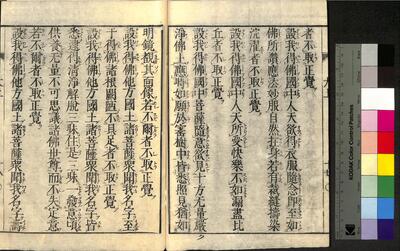 者不取正覺
設我得佛國中人天欲得衣服隨念即至如
佛所讚應法妙服自然在身若有裁縫擣染
浣濯者不取正覺
設我得佛國中人天所受快樂不如漏盡比
丘者不取正覺
設我得佛國中菩薩隨意欲見十方無量嚴
淨佛土應時如願於寶樹中皆悉照見猶如
明鏡覩其面像若不爾者不取正覺
設我得佛他方國土諸菩薩衆聞我名字至
于得佛諸根闕陋不具足者不取正覺
設我得佛他方國土諸菩薩衆聞我名字皆
悉逮得清淨解脱三昧住是三昧一發意頃
供養無量不可思議諸佛世尊而不失定意
若不爾者不取正覺
設我得佛他方國土諸菩薩衆聞我名字
KODAK Color Control Patches